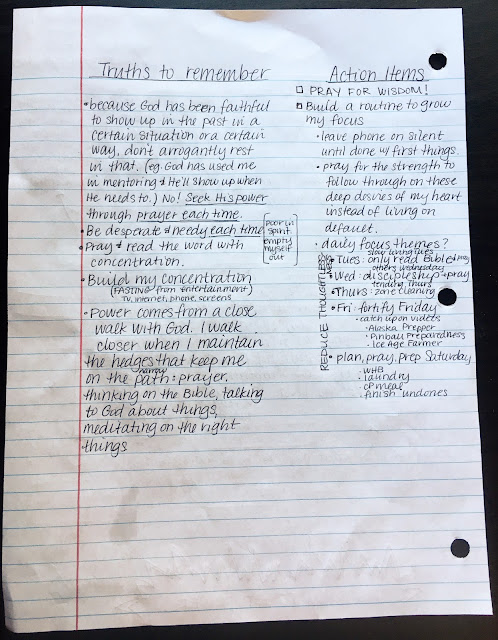 Truths to remember
• because God has been faithful
to show up in the past in a
certain situation or a certain
way, don't arrogantly rest
in that. (eg. God has used me
in mentoring & He'll show up when
He needs to.) No! Seek His power
through prayer each time.
• Be desperate & needy each time
[poor in
spirit
empty
myself
out]
• Pray & read the word with
concentration.
• Build my concentration
(FASTING from entertainment)
TV, internet, phone, screens
• Power comes from a close
walk with God. I walk
closer when I maintain
the hedges that keep me
on the narrow path: prayer,
thinking on the Bible, talking
to God about things,
meditating on the right
things
Action Items
□ PRAY FOR WISDOM!
□ Build a routine to grow
my focus
• leave phone on silent
until done w/ first things.
• pray for the strength to
follow through on these
deep desires of my heart
instead of living on
default.
• daily focus themes?
slow living tues
• Tues: only read Bible &
others wednesday
• Wed: discipleship & pray
tending Thurs
• Thurs: zone cleaning
• Fri: fortify Friday
• catch up on videos
• Alaska Prepper
• Pinball Preparedness
• Ice Age Farmer
• plan, pray, prep Saturday
• WHB
• laundry
• CP meal
• finish undones
REDUCE THOUGHTLESS